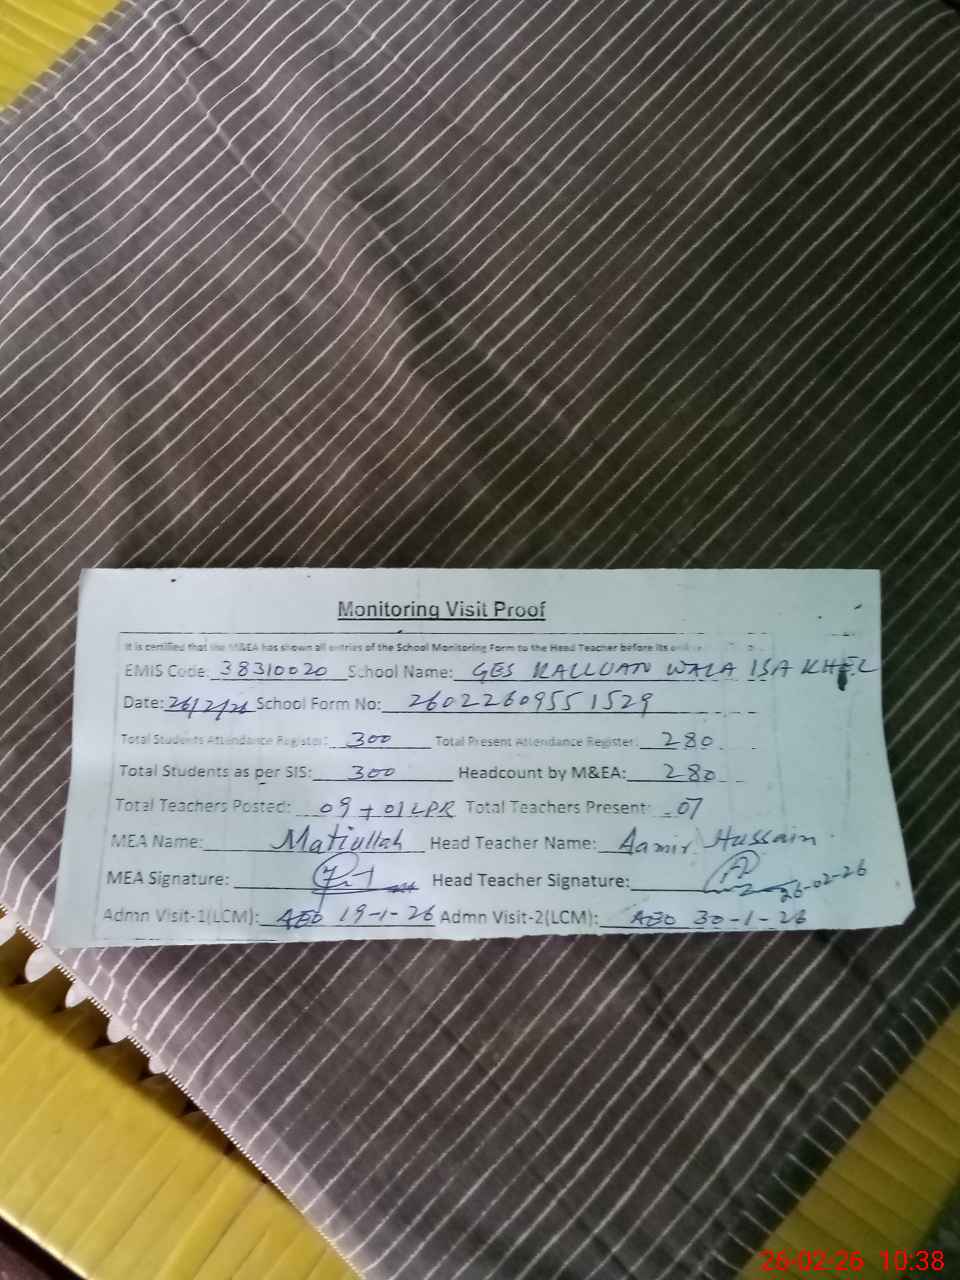 Monitoring Visit Proof
It is certified that the M&EA has shown all entries of the School Monitoring Form to the Head Teacher before its
EMIS Code: 38310020 School Name: GES KALLUAN WALA ISA KHEL
Date: 26/2/26 School Form No: 2602260955 1529
Total Students Attendance Register: 300 Total Present Attendance Register: 280
Total Students as per SIS: 300 Headcount by M&EA: 280
Total Teachers Posted: 09 + 01 LPR Total Teachers Present: 07
MEA Name: Matiullah Head Teacher Name: Aamir Hussain
MEA Signature: Head Teacher Signature: 26-02-26
Admn Visit-1(LCM): AEO 19-1-26 Admn Visit-2(LCM): AEO 30-1-26
26-02-26 10:38